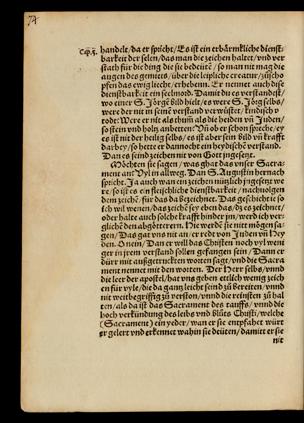 Cap. 5.
handelt / da er spricht / Es ist ein erbärmkliche dienst-
barkeit der selen / das man die zeichen haltet / vnd ver
stath für die ding die sie bedeütē / so man nit mag die
augen des gemiets / über die leipliche creatur / zůscho
pfen das ewig liecht / erhebenn. Er nennet auch dise
dienstbarkeit ein seelmord. Damit du es verstandest /
wo einer S. Jörgē bild hielt / es were S. Jörg selbs /
were der nit in seinē verstand verwüstet / kindisch vn
rodt: Were er nit als thum als die heiden vn̄ Juden /
so stein vnd holtz anbetten: Vn̄ ob er schon spreche / er
es ist nit der heilig selbs / es ist aber sein bild vn̄ krafft
darbey / so hette er dannocht ein heydischē verstand.
Dan es seind zeichen nit von Gott ingesetzt.
Möchten sie sagen / was ghat das vnser Sacra-
ment an? Vyl in allweg. Dan S. Augustin hernach
spricht. Ja auch wan ein zeichen nützlich īgesetz we
re / so ist es ein fleischliche dienstbarkeit / nachvolgen
dem zeichē / für das da bezeichnet. Das geschicht so
ich wil wenen / das zeichē sey eben das / das es zeichnet /
oder halte auch solche krafft hinder jm / werd ich ver-
glichē den abgötterern. Hie werdē sie nitt mögen sa-
gen / Das gat vns nit an: er redt von Juden vn̄ Hey
den. O nein / Dan er will das Christen noch vyl weni
ger in jrem verstand sollen gefangen sein / Dann er
dürr mit außgetruckten worten sagt / vnd die Sacra
ment nennet mit den worten. Der Herr selbs / vnnd
die leer der apostel / hat vns geben etlich wenig zeich
en für vyle / die da gang leicht seind zů bereiten / vnnd
nit weitbegriffig zů verston / vnnd die reinsten zů hal
ten / als da ist das Sacrament des tauffs / vnnd die
hoch verkündung des leibs vnd blůts Christi / welche
(Sacrament) ein yeder / wan er sie entpfahet würt
er gelert vnd erkennet wahin sie deüten / damit er sie
nit